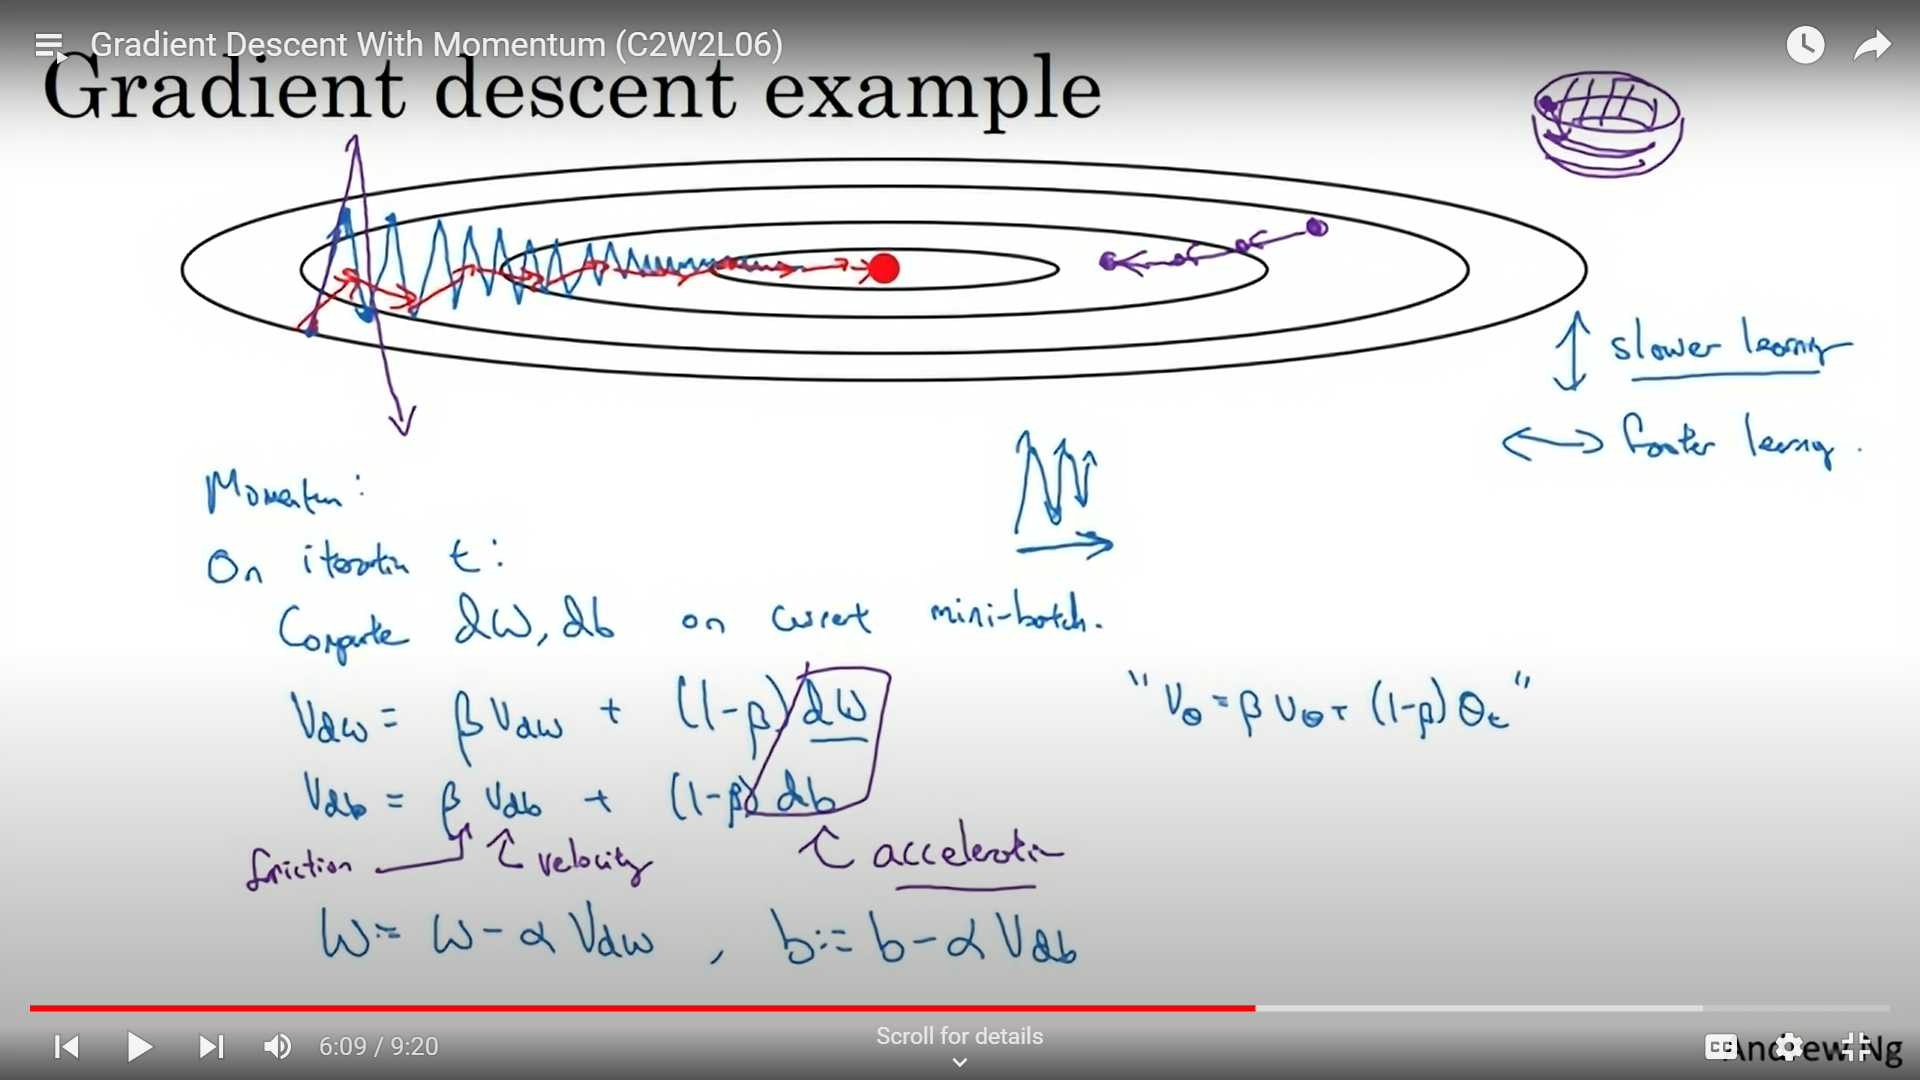 Gradient Descent With Momentum (C2W2L06)
Gradient descent example
slower learning
faster learning.
Momentum:
On iteration t:
Compute dW, db on current mini-batch.
Vdw = β Vdw + (1-β) dW
"Vθ = β Vθ + (1-β) θt"
Vdb = β Vdb + (1-β) db
friction velocity acceleration
W:= W - α Vdw , b:= b - α Vdb
6:09 / 9:20
Scroll for details
CC
Andrew Ng